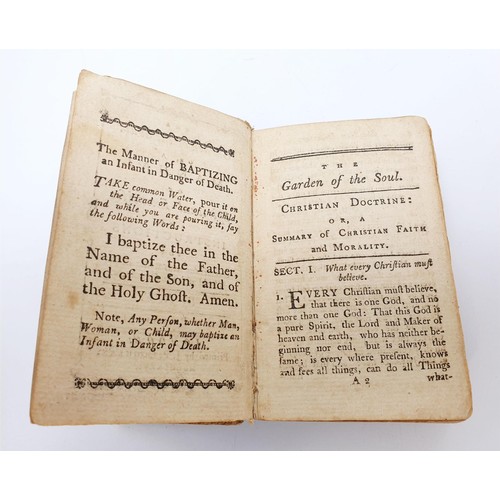 The Manner of BAPTIZING
an Infant in Danger of Death.
TAKE common Water, pour it on
the Head or Face of the Child,
and while you are pouring it, ſay
the following Words:
I baptize thee in the
Name of the Father,
and of the Son, and of
the Holy Ghoſt. Amen.
Note, Any Perſon, whether Man,
Woman, or Child, may baptize an
Infant in Danger of Death.
THE
Garden of the Soul.
CHRISTIAN DOCTRINE:
OR, A
SUMMARY OF CHRISTIAN FAITH
and MORALITY.
SECT. I. What every Chriſtian muſt
believe.
1. EVERY Chriſtian muſt believe,
that there is one God, and no
more than one God: That this God is
a pure Spirit, the Lord and Maker of
heaven and earth, who has neither be-
ginning nor end, but is always the
ſame; is every where preſent, knows
and ſees all things, can do all Things
A 2 what-